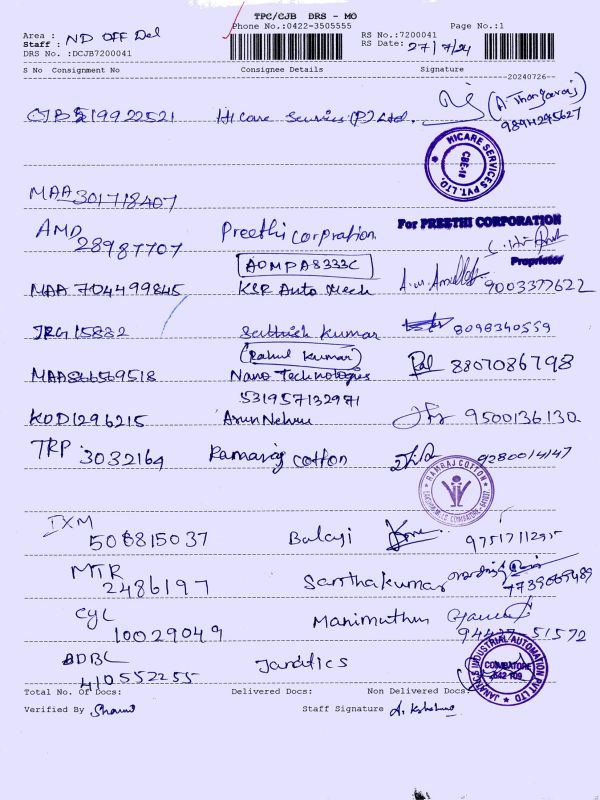 TPC/CJB DRS - MO
Phone No.:0422-3505555 Page No.:1
Area : ND OFF Del
Staff :
DRS No. :DCJB7200041
RS No.:7200041
RS Date: 27/7/24
S No Consignment No Consignee Details Signature
20240726
CJB 519922521 Hi care Services (P) Ltd.
9894245627
HICARE SERVICES PVT. LTD.
CBE-18
MAA 301718407
AMD 28987707 Preethi corpration For PREETHI CORPORATION
Proprietor
AOMPA8333C
MAA 704499845 KSR Auto Mech 9003377622
JRG 15832 Sathish Kumar 8098340559
(Rahul Kumar)
MAA866569518 Nano Technologies 8807086798
531957132971
KOD1296215 Arun Nehru 9500136130
TRP 3032164 Ramaraj cotton 9280014147
RAMRAJ COTTON
IXM 508815037 Balaji
MTR 2486197 Santhakumar
CYL 10029049 Manimuthu 51572
410552255 Janatics
JANATICS INDUSTRIAL AUTOMATION PVT LTD
COIMBATORE
642 109
Total No. Of Docs: Delivered Docs: Non Delivered Docs:
Verified By Staff Signature